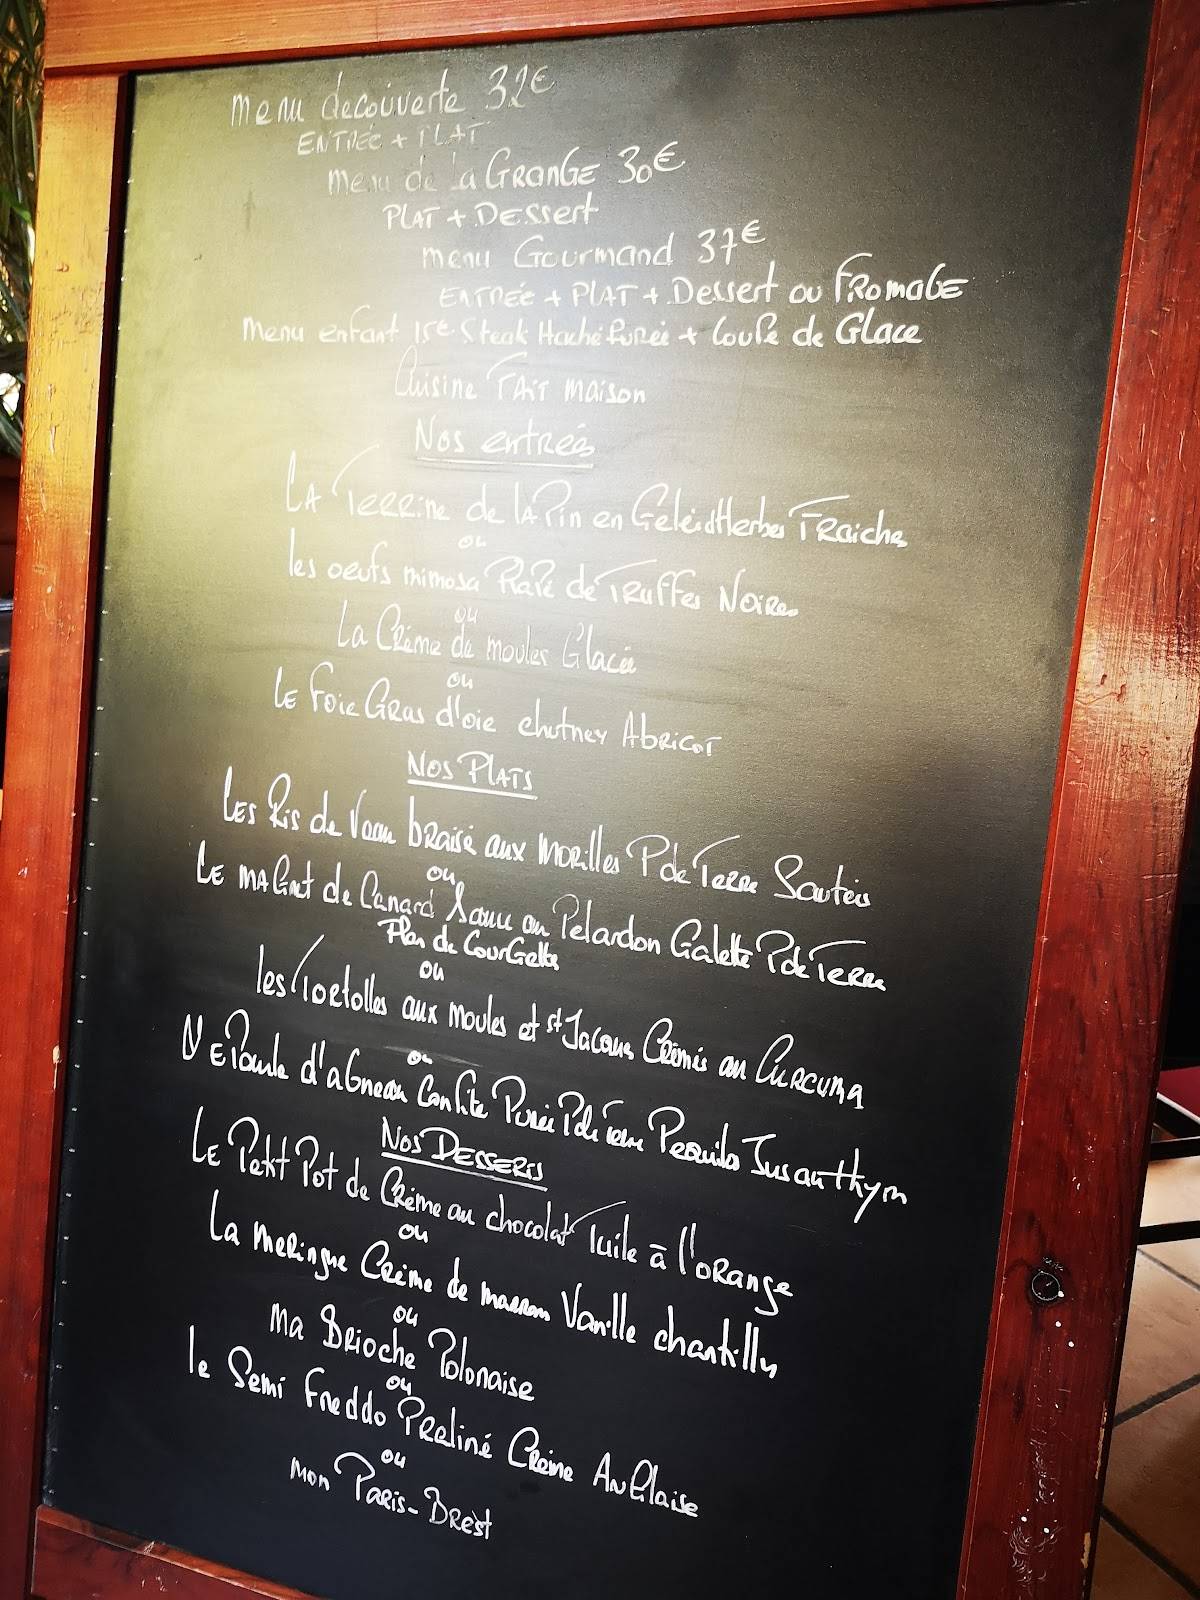 menu decouverte 32€
ENTRÉE + PLAT
menu de la GRANGE 30€
PLAT + Dessert
menu Gourmand 37€
ENTRÉE + PLAT + Dessert ou FROMAGE
menu enfant 15€ Steak Haché Purée + Coupe de Glace
Cuisine FAIT maison
Nos entrées
LA Terrine de LAPin en Gelée d'Herbes FRaiches
ou
les oeufs mimosa Rapé de Truffes Noires
ou
La Crème de moules Glacée
ou
Le Foie Gras d'oie chutney Abricot
Nos PLATS
Les Ris de Veau braisé aux morilles P de Terre Sautées
ou
Le maGret de Canard au Pelardon Galette P de Terre
Flan de CourGettes
ou
les Tortolles aux moules et St Jacques Crémés au Curcuma
ou
EPaule d'aGneau Confite Purée P de Terre Pequillo Jus au thym
Nos Desserts
Le Petit Pot de Crème au chocolat Tuile à l'orange
ou
La meringue Crème de marron Vanille chantilly
ou
ma Brioche Polonaise
ou
le Semi Freddo Praliné Crème AnGlaise
ou
mon Paris-Brest